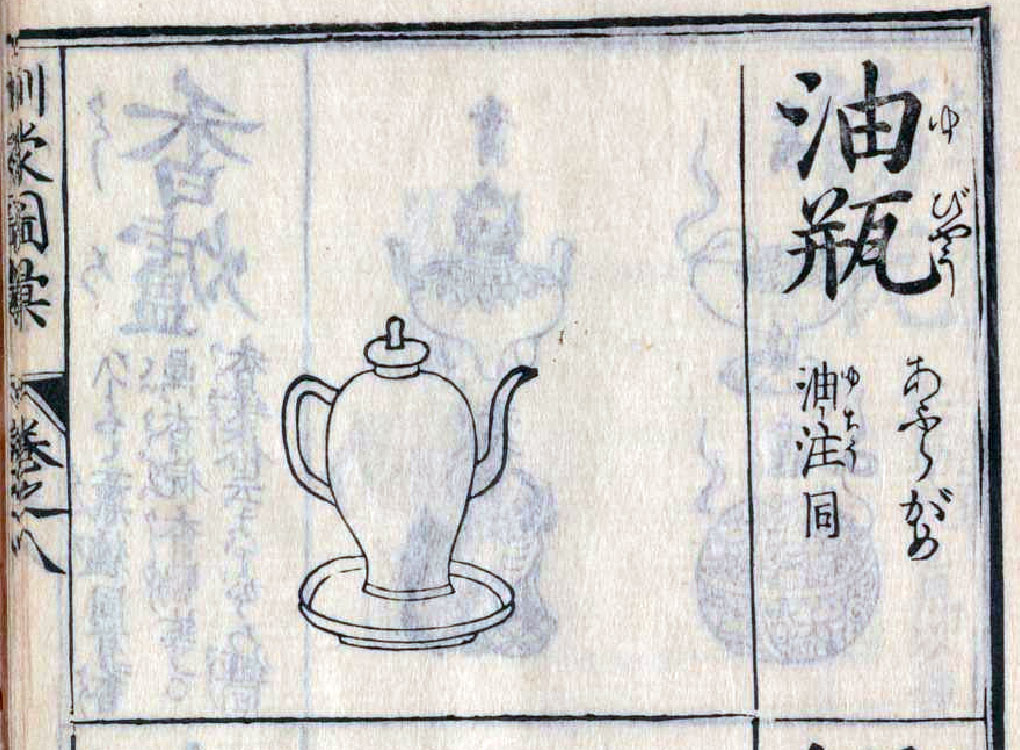 油瓶
ゆびやう
あふらがめ
油注同
ゆちう
訓蒙圖彙